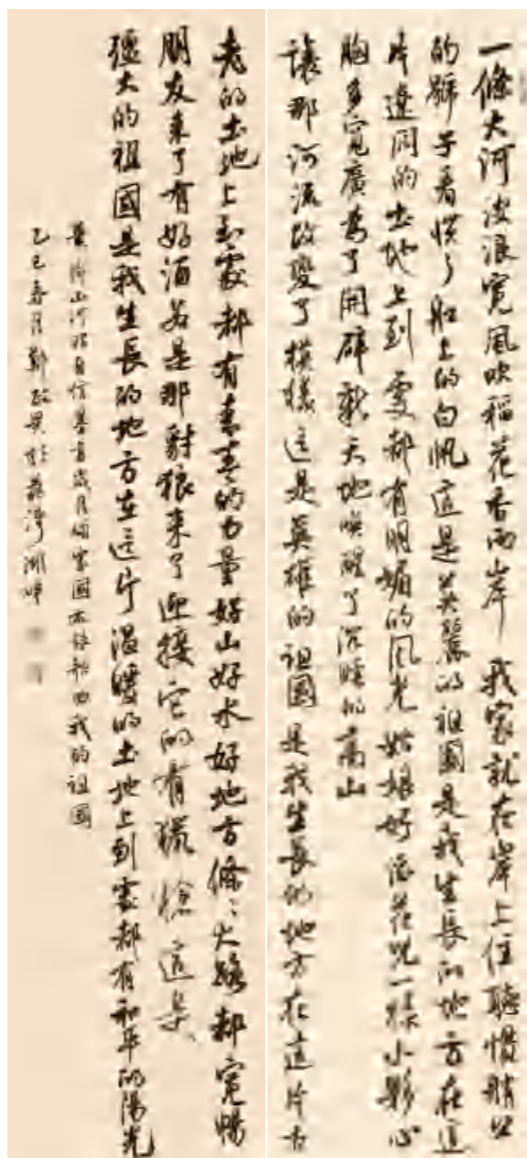 一條大河波浪寬風吹稻花香兩岸我家就在岸上住聽慣艄公
的號子看慣了船上的白帆這是美麗的祖國是我生長的地方在這
片遼闊的土地上到處都有明媚的風光姑娘好像花兒一樣小夥心
胸多寬廣爲了開辟新天地喚醒了沉睡的高山
讓那河流改變了模樣這是英雄的祖國是我生長的地方在這片古
老的土地上到處都有青春的力量好山好水好地方條〻大路都寬暢
朋友來了有好酒若是那豺狼來了迎接它的有獵槍這是
強大的祖國是我生長的地方在這片溫暖的土地上到處都有和平的陽光
山河 自信 歲月 家國 歌曲我的祖國
乙巳春月鄭